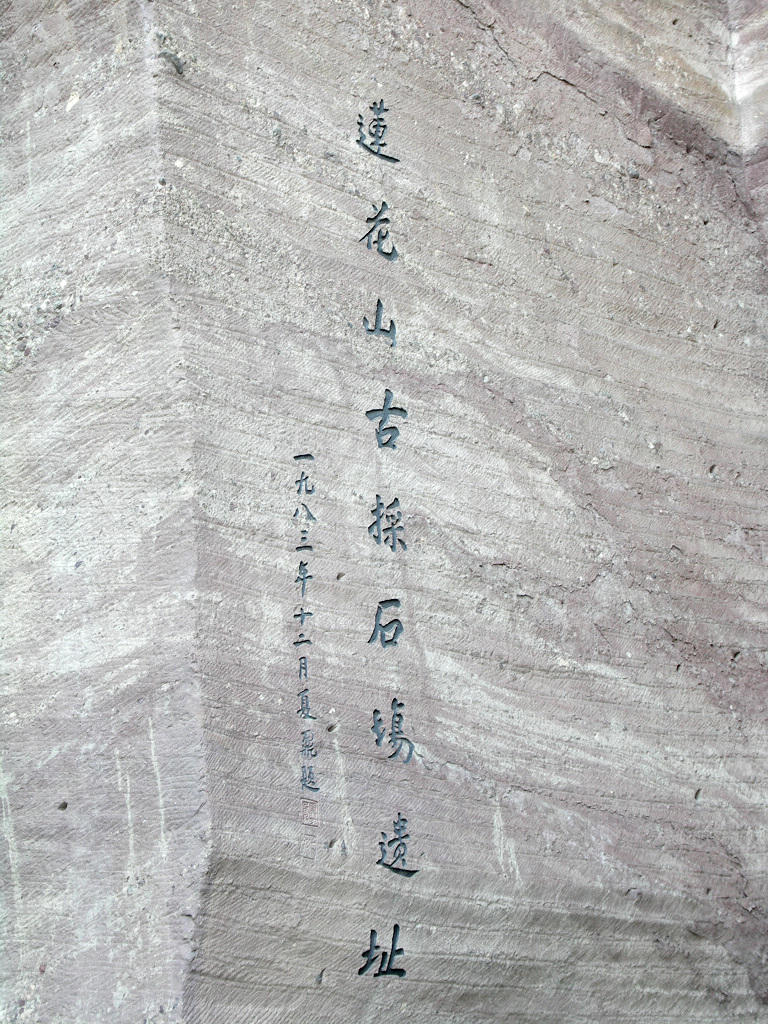 蓮花山古採石場遺址
一九八三年十二月夏鼐題